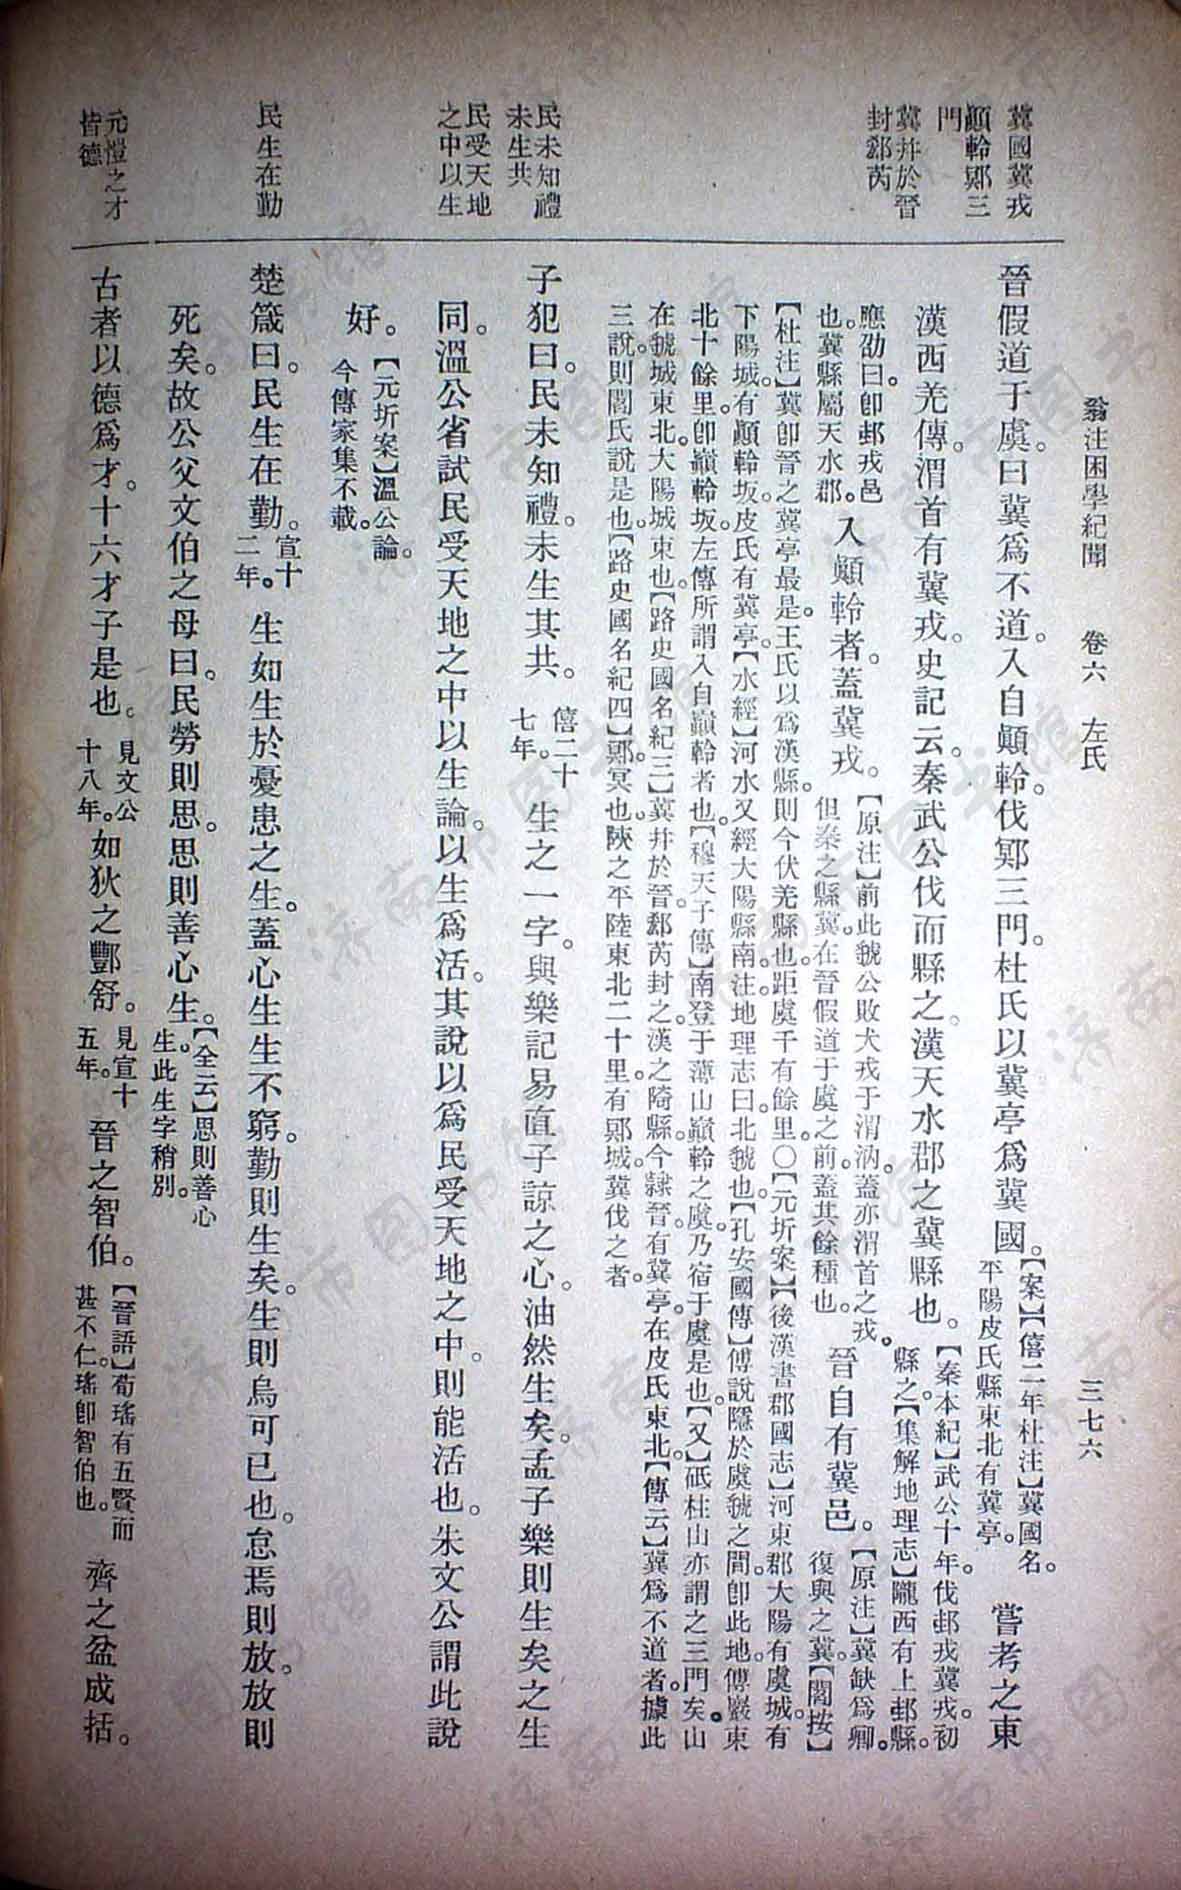 翁注困學紀聞　卷六　左氏　三七六
冀國冀戎
顚軨鄍三
門
冀幷於晉
封郤芮
民未知禮
未生共
民受天地
之中以生
民生在勤
元愷之才
皆德
晉假道于虞。曰冀爲不道。入自顚軨。伐鄍三門。杜氏以冀亭爲冀國。【案】【僖二年杜注】冀國名。平陽皮氏縣東北有冀亭。嘗考之東
漢西羌傳。渭首有冀戎。史記云。秦武公伐而縣之。漢天水郡之冀縣也。【秦本紀】武公十年。伐邽戎冀戎。初縣之。【集解地理志】隴西有上邽縣。
應劭曰。卽邽戎邑也。冀縣屬天水郡。入顚軨者。蓋冀戎。【原注】前此虢公敗犬戎于渭汭。蓋亦渭首之戎。但秦之縣冀。在晉假道于虞之前。蓋其餘種也。晉自有冀邑。【原注】冀缺爲卿。復興之冀。【閻按】
【杜注】冀卽晉之冀亭最是。王氏以爲漢縣。則今伏羌縣也。距虞千有餘里。〇【元圻案】【後漢書郡國志】河東郡大陽有虞城。有
下陽城。有顚軨坂。皮氏有冀亭。【水經】河水又經大陽縣南。注地理志曰。北虢也。【孔安國傳】傅說隱於虞虢之間。卽此地。傅巖東
北十餘里。卽巔軨坂。左傳所謂入自巔軨者也。【穆天子傳】南登于薄山巔軨之虞。乃宿于虞是也。【又】砥柱山亦謂之三門矣。山
在虢城東北。大陽城東也。【路史國名紀三】冀幷於晉。郤芮封之。漢之隋縣。今隸晉。有冀亭。在皮氏東北。【傳云】冀爲不道者。據此
三說。則閻氏說是也。【路史國名紀四】鄍。冥也。陝之平陸東北二十里。有鄍城。冀伐之者。
子犯曰。民未知禮。未生其共。僖二十七年。生之一字。與樂記易直子諒之心。油然生矣。孟子樂則生矣之生
同。溫公省試民受天地之中以生論。以生爲活。其說以爲民受天地之中。則能活也。朱文公謂此說
好。【元圻案】溫公論。今傳家集不載。
楚箴曰。民生在勤。宣十二年。生如生於憂患之生。蓋心生生不窮。勤則生矣。生則烏可已也。怠焉則放。放則
死矣。故公父文伯之母曰。民勞則思。思則善心生。【全云】思則善心生。此生字稍別。
古者以德爲才。十六才子是也。見文公十八年。如狄之酆舒。見宣十五年。晉之智伯。【晉語】荀瑤有五賢而甚不仁。瑤卽智伯也。齊之盆成括。